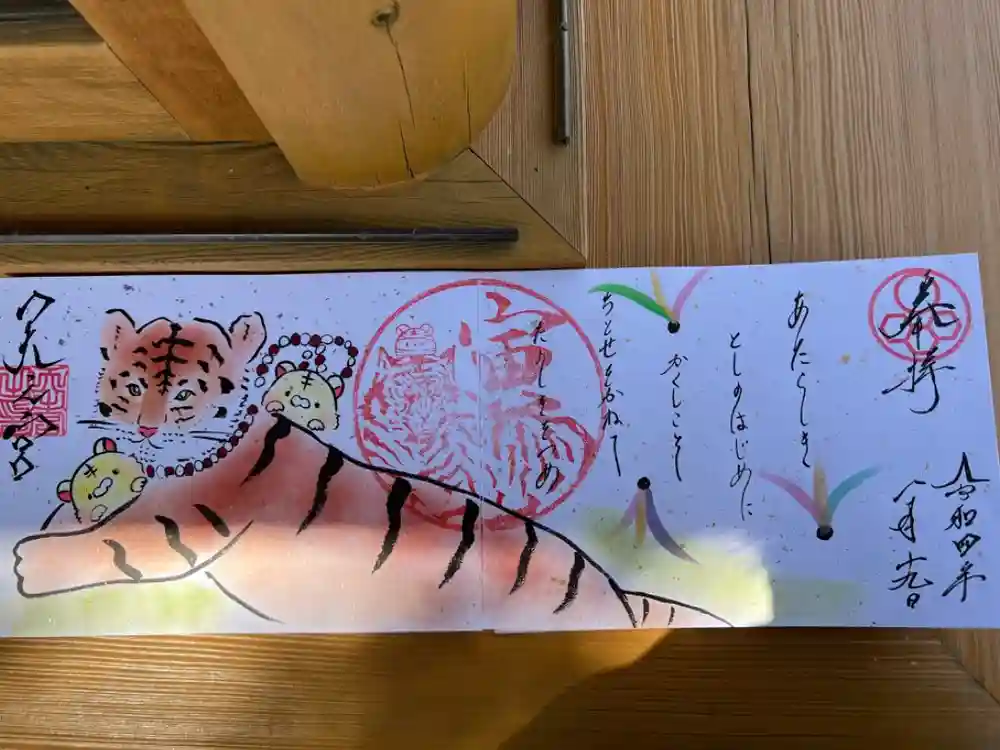 奉拝
令和四年
八月十九日
あたらしき
としのはじめに
かくしこそ
ちとせをかねて
たのしきをつめ
寅